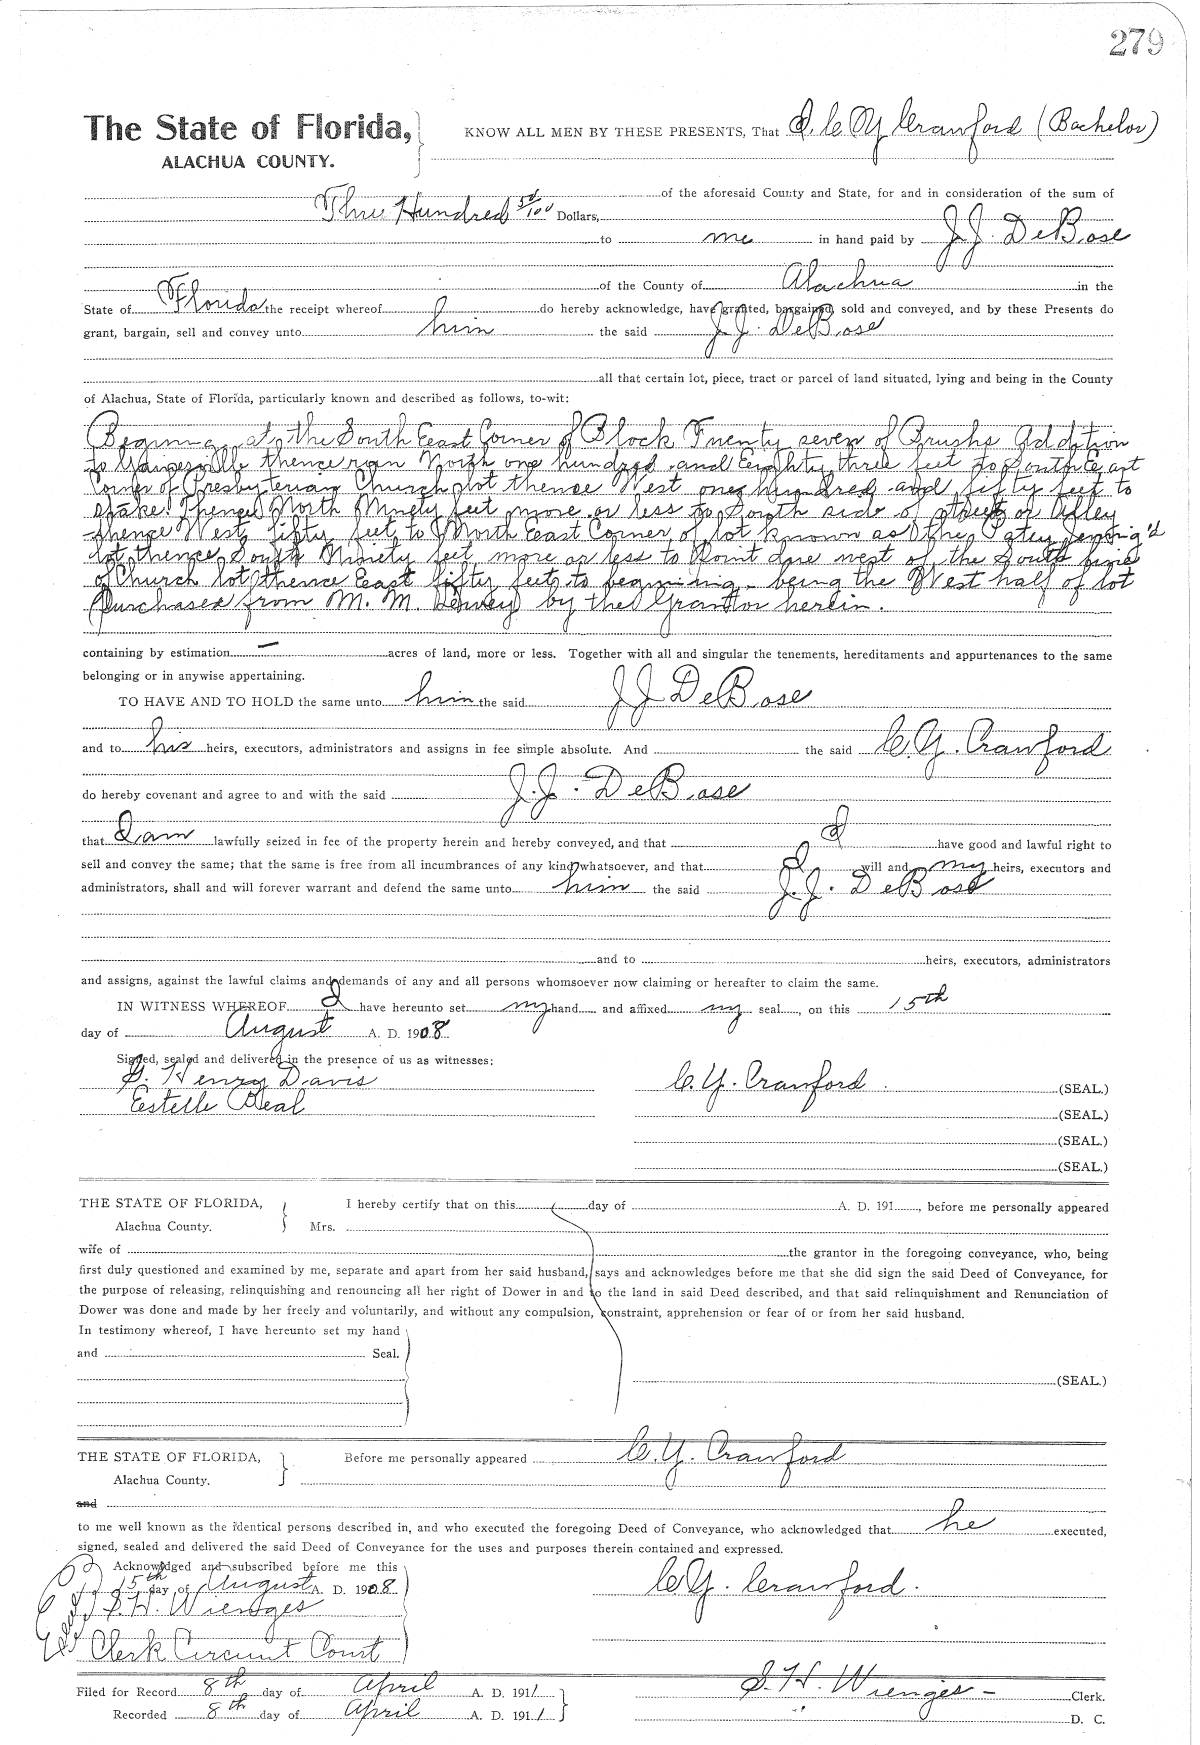 279
The State of Florida,
ALACHUA COUNTY.
KNOW ALL MEN BY THESE PRESENTS, That I, C Y Crawford (Bachelor)
of the aforesaid County and State, for and in consideration of the sum of
Three Hundred Dollars,
to me in hand paid by J J. DeBose
of the County of Alachua in the
State of Florida the receipt whereof do hereby acknowledge, have granted, bargained, sold and conveyed, and by these Presents do
grant, bargain, sell and convey unto him the said J J. DeBose
all that certain lot, piece, tract or parcel of land situated, lying and being in the County
of Alachua, State of Florida, particularly known and described as follows, to-wit:
Beginning at the South East Corner of Block Twenty seven of Brushs Addition
to Gainesville thence run North one hundred and Eighty three feet to South East
Corner of Presbyterian Church lot thence West one hundred and fifty feet to
stake Thence North Ninety feet more or less to South side of street or Alley
thence West fifty feet to North East Corner of lot known as the
lot thence South Ninety feet more or less to Point due west of the South line
of Church lot, thence East fifty feet to beginning - being the West half of lot
purchased from M. M. by the Grantor herein.
containing by estimation – acres of land, more or less. Together with all and singular the tenements, hereditaments and appurtenances to the same
belonging or in anywise appertaining.
TO HAVE AND TO HOLD the same unto him the said J J DeBose
and to his heirs, executors, administrators and assigns in fee simple absolute. And the said C. Y. Crawford
do hereby covenant and agree to and with the said J. J. DeBose
that I am lawfully seized in fee of the property herein and hereby conveyed, and that I have good and lawful right to
sell and convey the same; that the same is free from all incumbrances of any kind whatsoever, and that I will and my heirs, executors and
administrators, shall and will forever warrant and defend the same unto him the said J. J. DeBose
and to heirs, executors, administrators
and assigns, against the lawful claims and demands of any and all persons whomsoever now claiming or hereafter to claim the same.
IN WITNESS WHEREOF I have hereunto set my hand and affixed my seal, on this 15th
day of August A. D. 1908.
Signed, sealed and delivered in the presence of us as witnesses:
Henry Davis C. Y. Crawford (SEAL.)
Estelle Beal (SEAL.)
(SEAL.)
(SEAL.)
THE STATE OF FLORIDA, I hereby certify that on this day of A. D. 191, before me personally appeared
Alachua County. Mrs.
wife of the grantor in the foregoing conveyance, who, being
first duly questioned and examined by me, separate and apart from her said husband, says and acknowledges before me that she did sign the said Deed of Conveyance, for
the purpose of releasing, relinquishing and renouncing all her right of Dower in and to the land in said Deed described, and that said relinquishment and Renunciation of
Dower was done and made by her freely and voluntarily, and without any compulsion, constraint, apprehension or fear of or from her said husband.
In testimony whereof, I have hereunto set my hand
and Seal.
(SEAL.)
THE STATE OF FLORIDA, Before me personally appeared C. Y. Crawford
Alachua County.
and
to me well known as the identical persons described in, and who executed the foregoing Deed of Conveyance, who acknowledged that he executed,
signed, sealed and delivered the said Deed of Conveyance for the uses and purposes therein contained and expressed.
Acknowledged and subscribed before me this
15th day of August A. D. 1908. C. Y. Crawford.
S. H. Wienges
Clerk Circuit Court
S. H. Wienges – Clerk.
Filed for Record 8th day of April A. D. 1911
Recorded 8th day of April A. D. 1911 D. C.